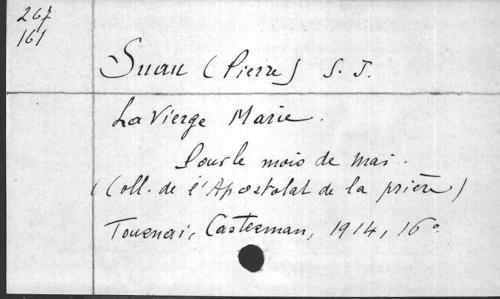 267
161
Suau (Pierre) S. J.
La Vierge Marie.
Pour le mois de mai.
(Coll. de l'Apostolat de la prière)
Tournai, Casterman, 1914, 16°